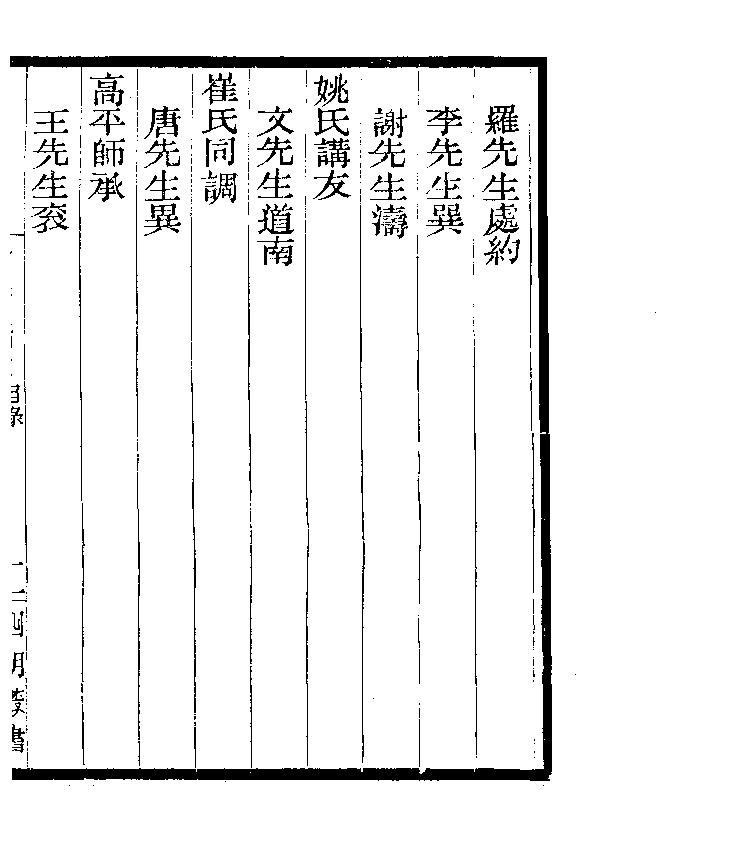 羅先生處約
李先生巽
謝先生濤
姚氏講友
文先生道南
崔氏同調
唐先生異
高平師承
王先生袞
目錄
四明叢書